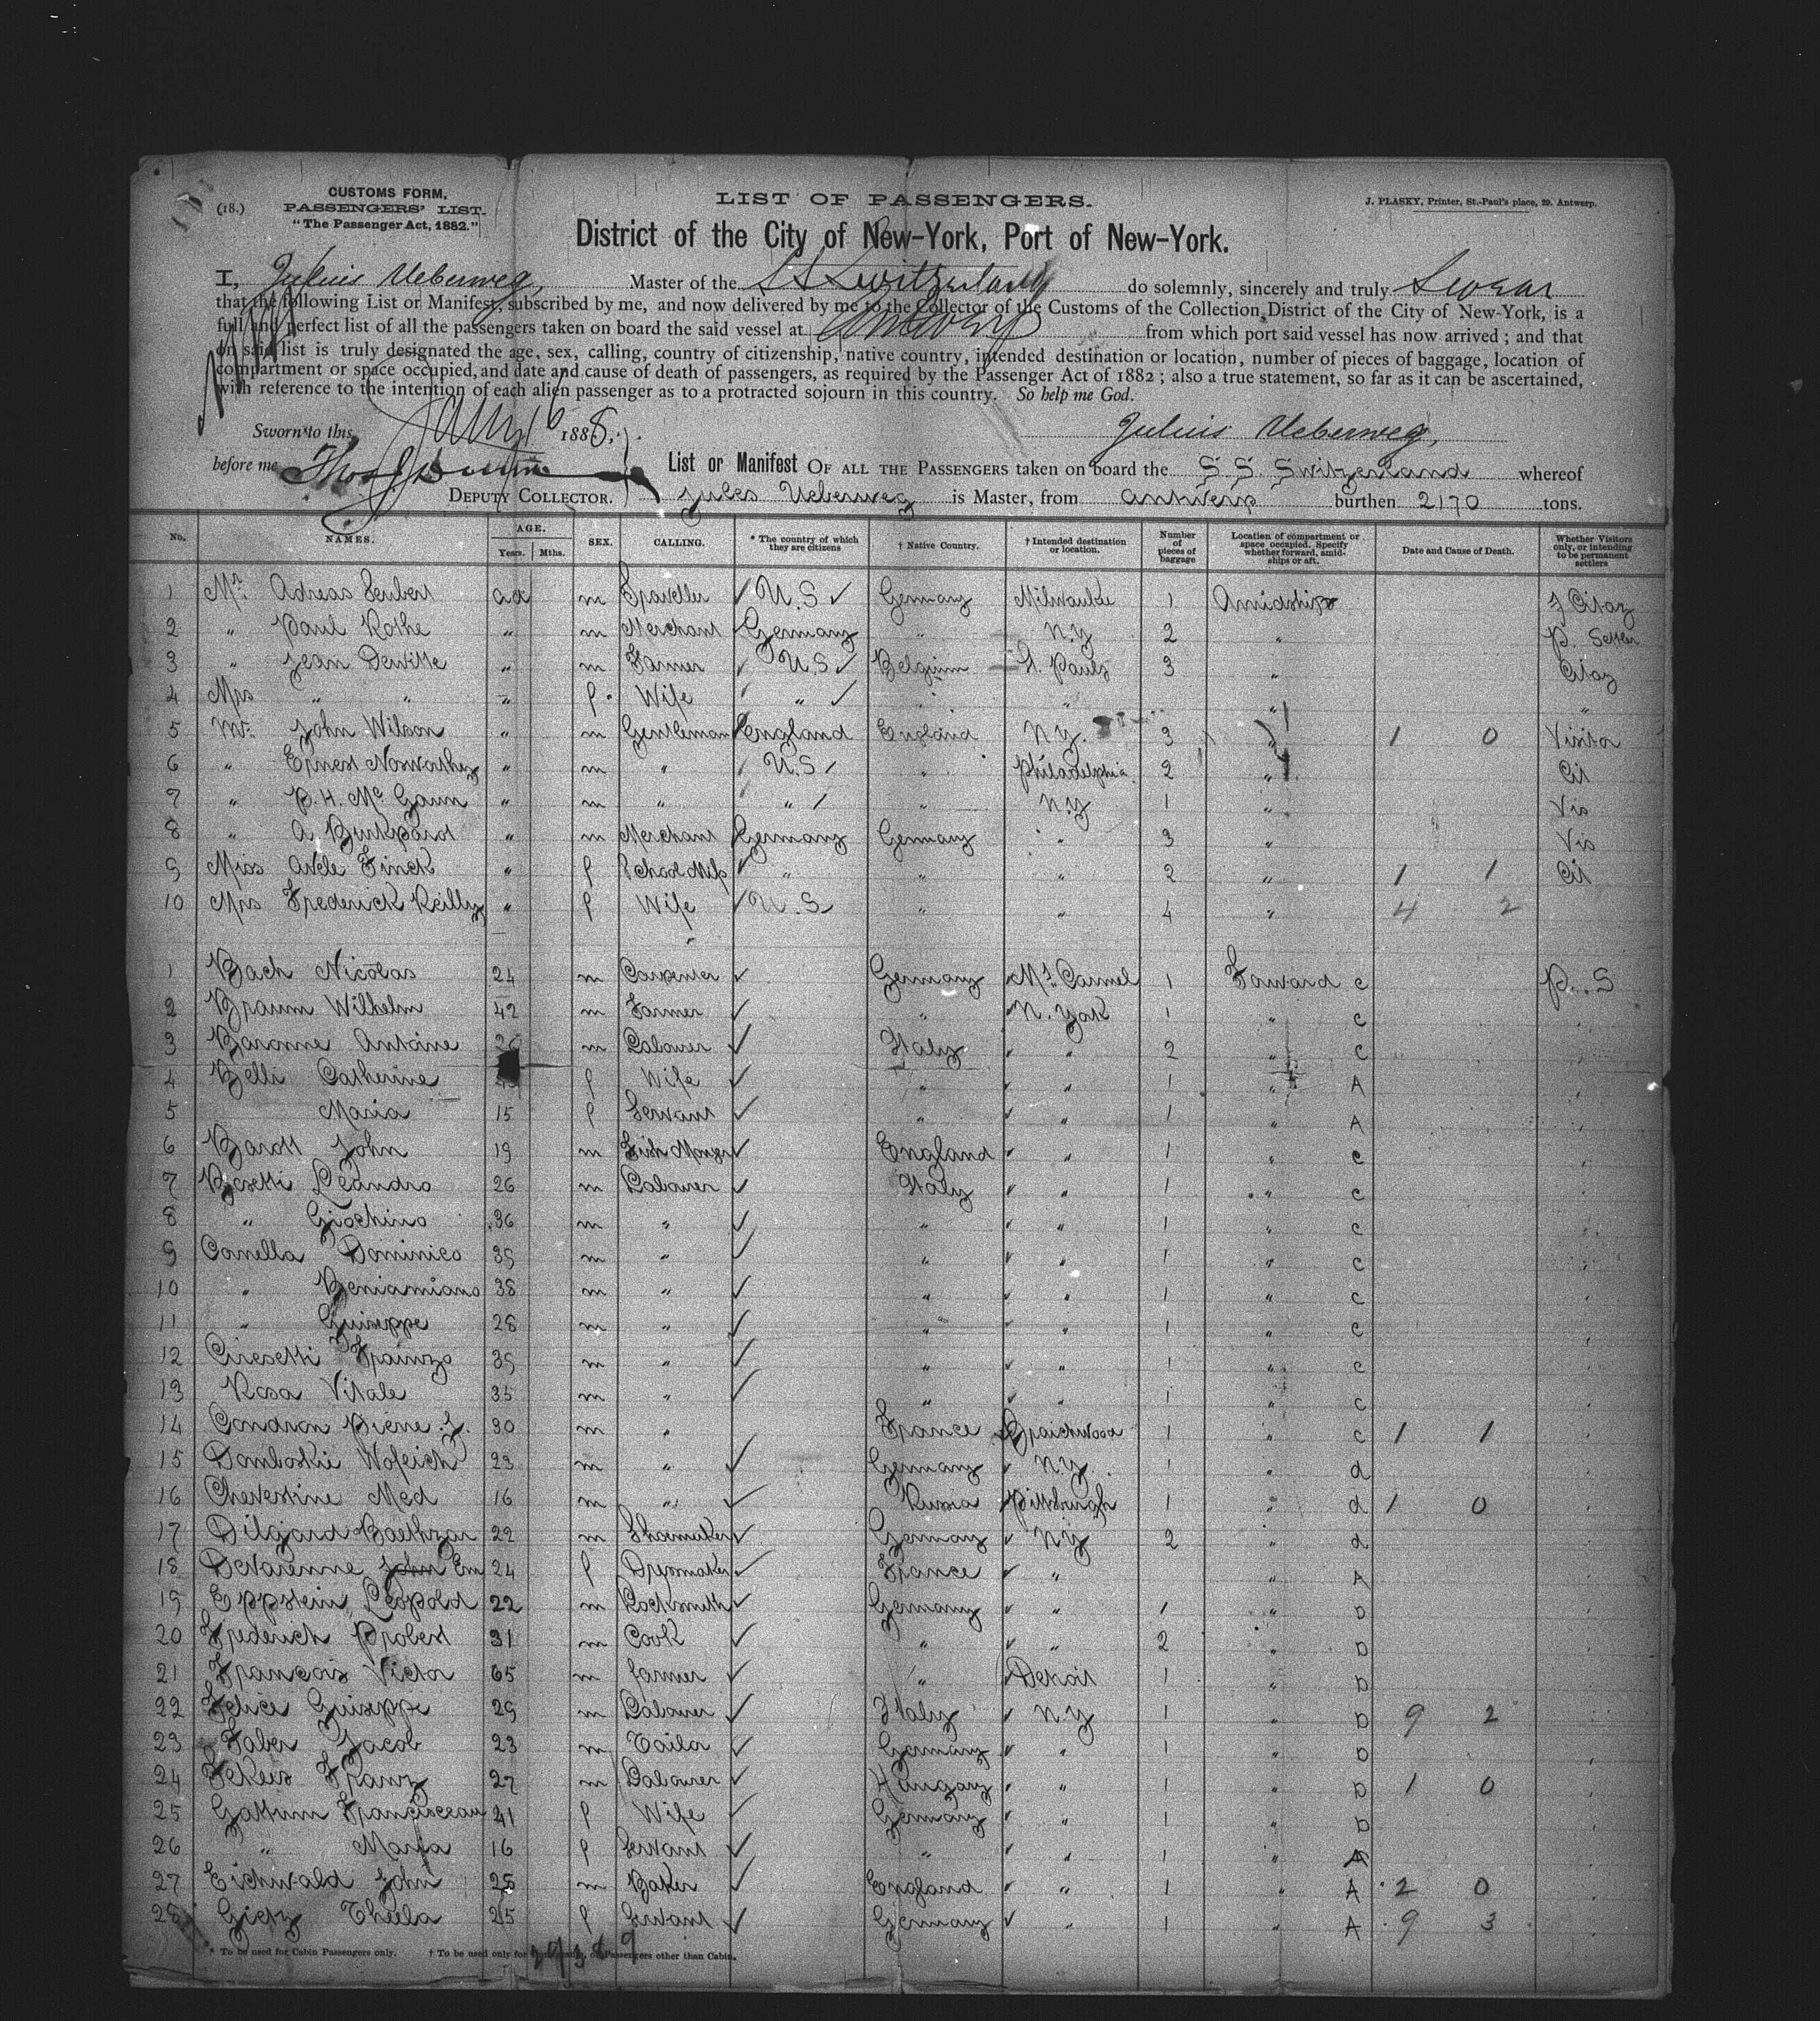 (18.)
CUSTOMS FORM.
PASSENGERS' LIST.
"The Passenger Act, 1882."
LIST OF PASSENGERS.
J. PLASKY, Printer, St.-Paul's place, 29. Antwerp.
District of the City of New-York, Port of New-York.
I, Julius Ueberweg, Master of the SS Switzerland do solemnly, sincerely and truly Swear
that the following List or Manifest, subscribed by me, and now delivered by me to the Collector of the Customs of the Collection District of the City of New-York, is a
full and perfect list of all the passengers taken on board the said vessel at Antwerp from which port said vessel has now arrived ; and that
on said list is truly designated the age, sex, calling, country of citizenship, native country, intended destination or location, number of pieces of baggage, location of
compartment or space occupied, and date and cause of death of passengers, as required by the Passenger Act of 1882 ; also a true statement, so far as it can be ascertained,
with reference to the intention of each alien passenger as to a protracted sojourn in this country. So help me God.
Sworn to this 16 1888, Julius Ueberweg,
before me
List or Manifest OF ALL THE PASSENGERS taken on board the S S Switzerland whereof
DEPUTY COLLECTOR. Jules Ueberweg is Master, from Antwerp burthen 2170 tons.
No. NAMES. AGE. Years. Mths. SEX. CALLING. * The country of which they are citizens † Native Country. † Intended destination or location. Number of pieces of baggage Location of compartment or space occupied. Specify whether forward, amidships or aft. Date and Cause of Death. Whether Visitors only, or intending to be permanent settlers
1 Mr. Adreas Seubert ad m Traveller U.S Germany Milwaukee 1 Amidships
2 " Paul Rothe " m Merchant Germany " N.Y 2 " P. Settler
3 " Jean Dewitte " m Farmer U.S Belgium St. Pauls 3 "
4 Mrs " " " f Wife " " " " "
5 Mr. John Wilson " m Gentleman England England N.Y. 3 " 1 0 Visitor
6 " Ernest Norworthy " m " U.S " Philadelphia 2 " Cit
7 " P.H. Mc Gann " m " " " N.Y 1 " Vis
8 " A. Burkhard " m Merchant Germany Germany " 3 " Vis
9 Miss Adele Finck " f " " " 2 " 1 1 Cit
10 Mrs Frederick Reilly " f Wife U.S " " 4 " 4 2
1 Bach Nicolas 24 m Carpenter Germany Mt. Carmel 1 Forward C P. S
2 Braum Wilhelm 42 m Farmer " N. York 1 " C
3 Baronne Antoine 26 m Labourer Italy " 2 " C
4 Belli Catherine f Wife " " 1 " A
5 Maria 15 f Servant " " 1 " A
6 Bardt John 19 m Fish Monger England " 1 " C
7 Besetti Leandro 26 m Labourer Italy " 1 " C
8 " Giochino 36 m " " " 1 " C
9 Conella Dominico 39 m " " " 1 " C
10 " Beniamiano 38 m " " " 1 " C
11 " Guiseppe 28 m " " " 1 " C
12 Ciresetti 39 m " " " 1 " C
13 Rosa Vitale 35 m " " " 1 " C
14 Condron Pierre J. 30 m " France Braidwood 1 " C 1 1
15 Domboskie 23 m " Germany N.Y. 1 " d
16 Chevestine Med 16 m " Russia Pittsburgh 1 " d 1 0
17 Dilgard 22 m Shoemaker Germany NY 2 " d
18 Devarenne Em 24 f Dressmaker France " " A
19 Eppstein Leopold 22 m Locksmith Germany " 1 " D
20 Frederich Probest 31 m Cook " " 2 " D
21 Francois Victor 65 m farmer " Detroit 1 " D
22 Felice Guiseppe 29 m Labourer Italy N.Y 1 " D 9 2
23 Faber Jacob 23 m Tailor Germany " 1 " D
24 Franz 27 m Labourer Hungary " 1 " D 1 0
25 Gattum 41 f Wife Germany " 1 " D
26 " Maria 16 f Servant " " 1 " A
27 Eichwald John 25 m Baker England " 1 " A 2 0
28 Gietz Thecla 25 f Servant Germany " 1 " A 9 3
* To be used for Cabin Passengers only. † To be used only for Passengers other than Cabin.